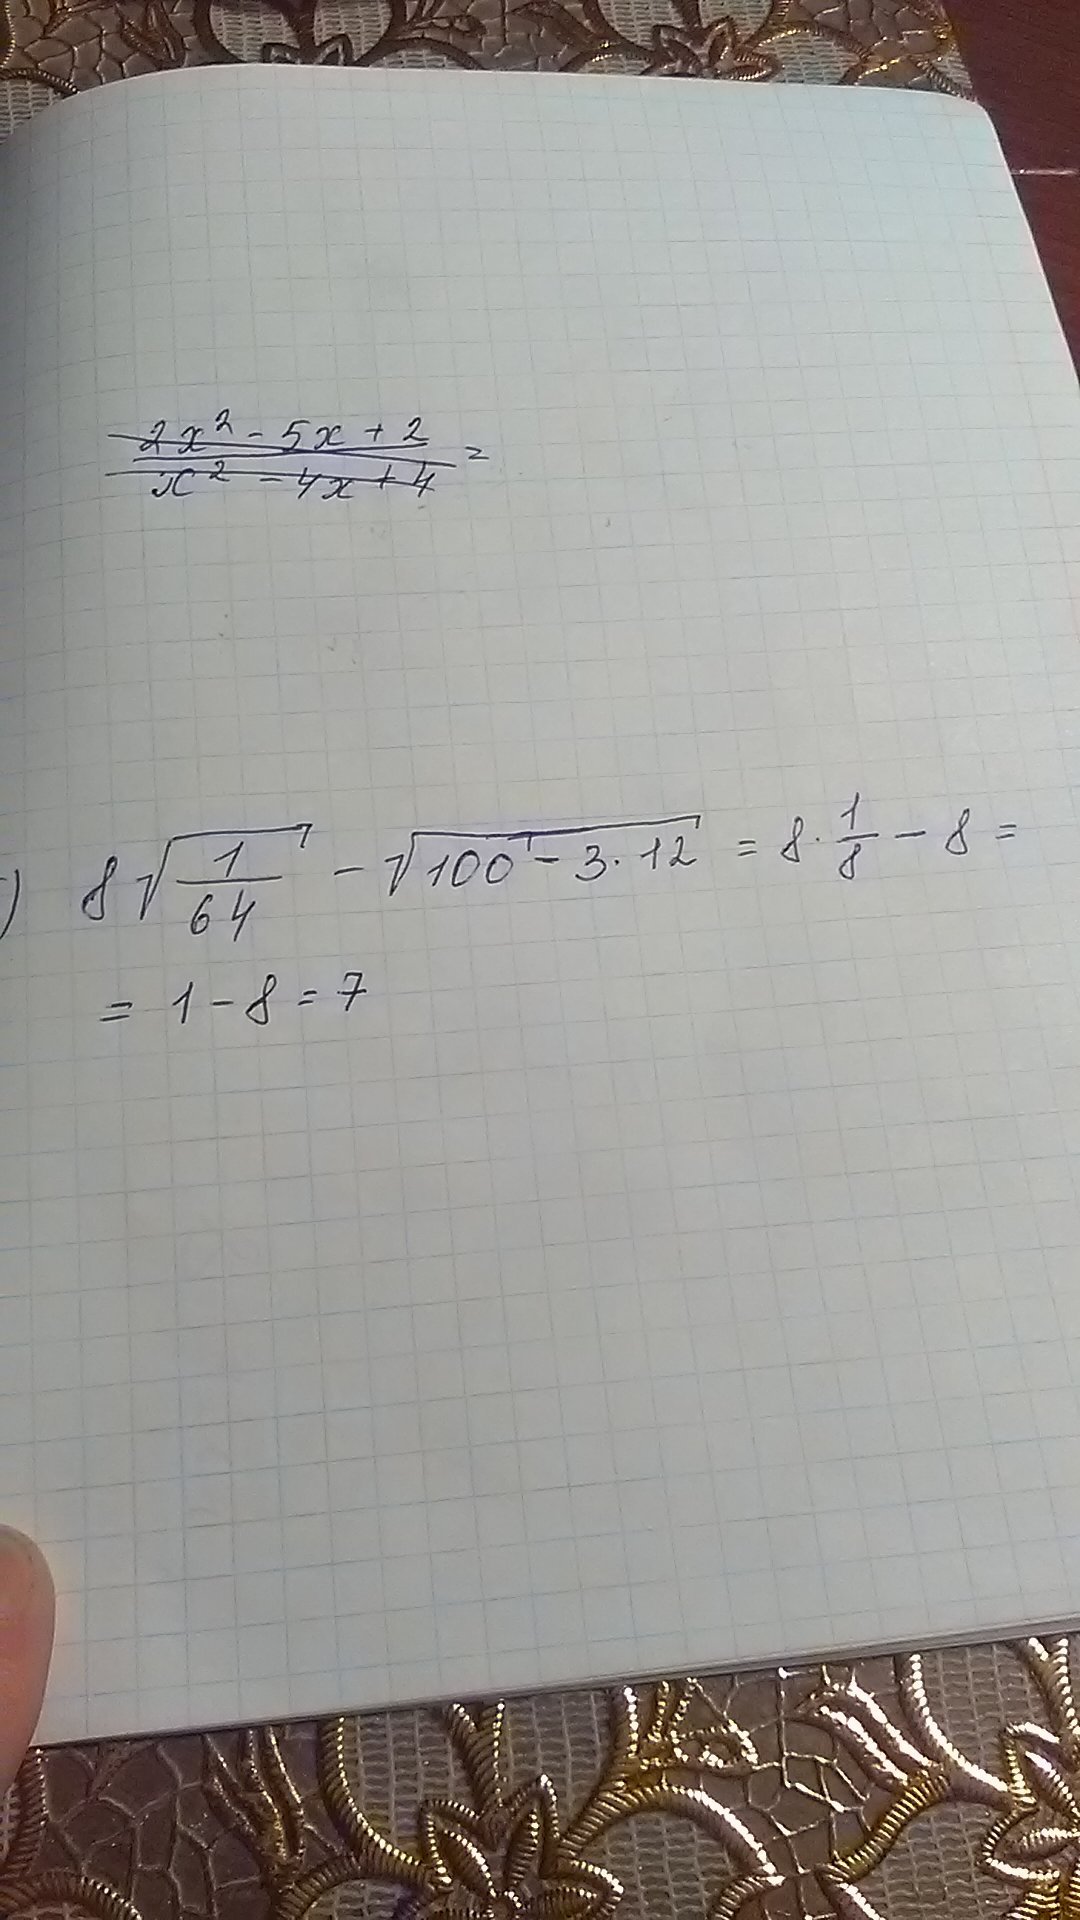 2x² - 5x + 2
x² - 4x + 4 =
) 8√1/64 - √100 - 3 · 12 = 8 · 1/8 - 8 =
= 1 - 8 = 7